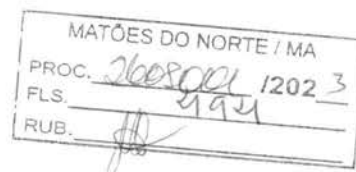 MATÕES DO NORTE / MA
PROC. 2608001 /2023
FLS. 494
RUB.